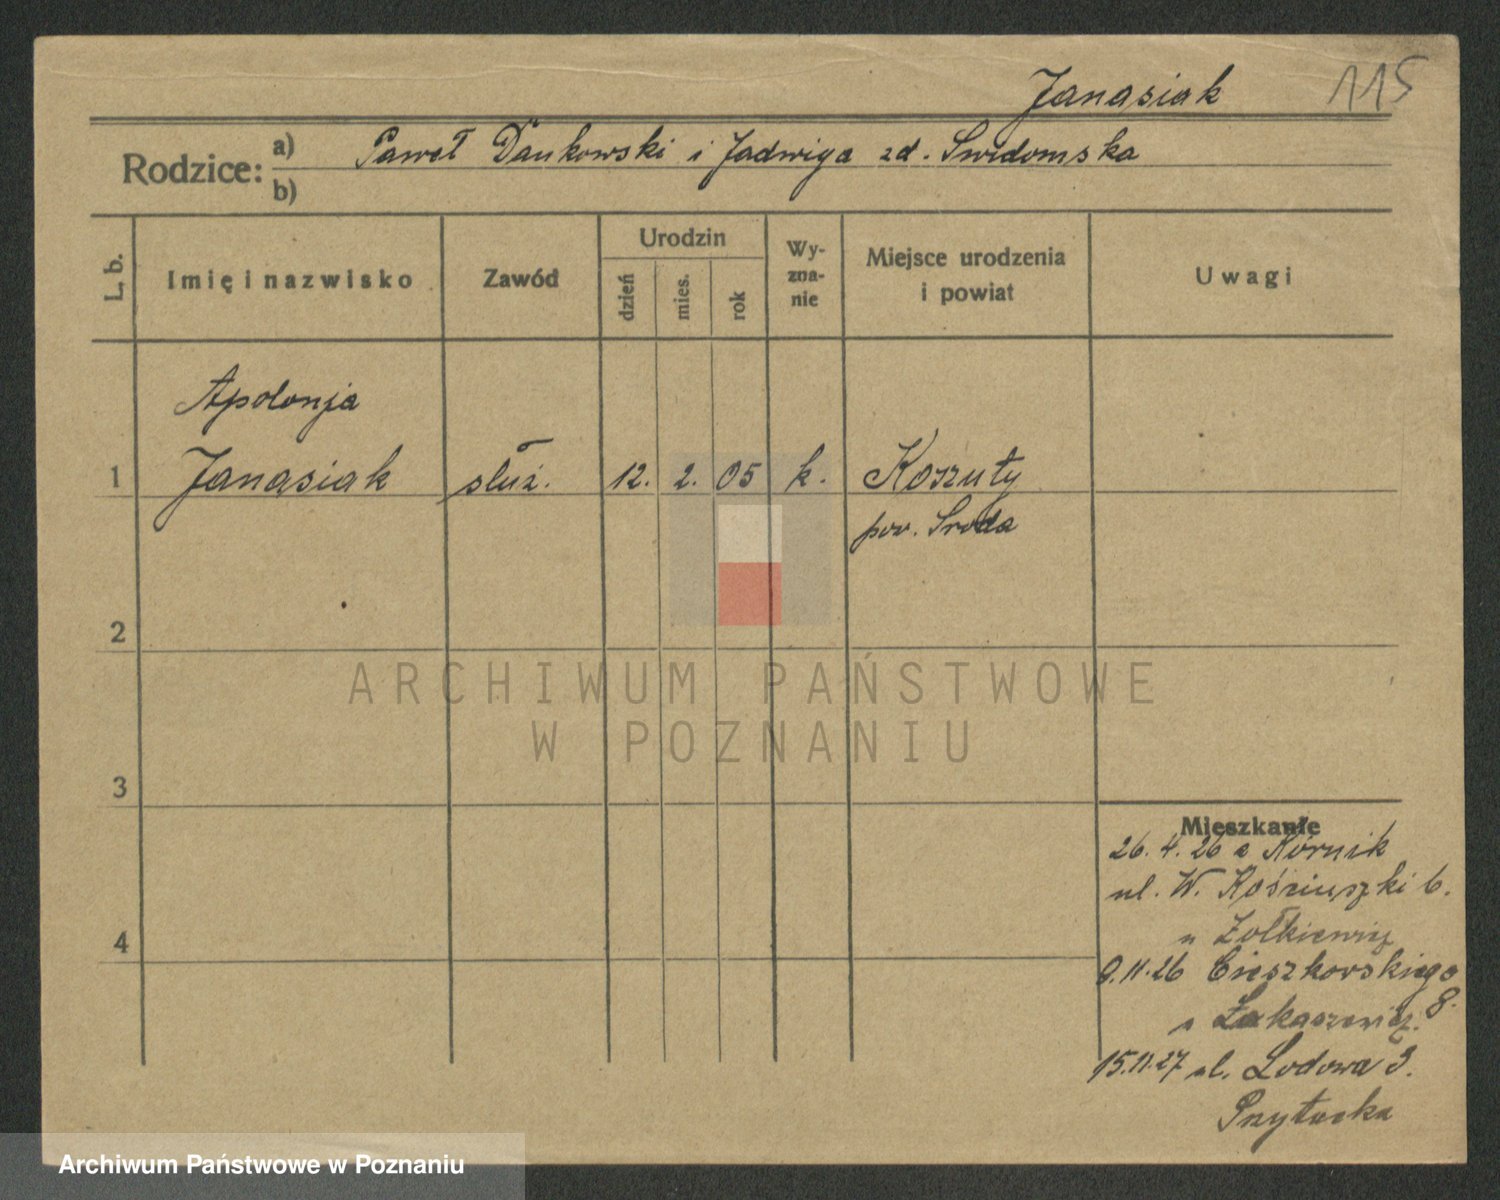 Janasiak 115
Rodzice: a) Paweł Dankowski i Jadwiga zd. Swidomska
b)
L. b. Imię i nazwisko Zawód Urodzin dzień mies. rok Wyznanie Miejsce urodzenia i powiat Uwagi
Apolonja
1 Janasiak służ. 12. 2. 05 k. Koszuty
pow. Sroda
2
ARCHIWUM PAŃSTWOWE
W POZNANIU
3
Mieszkanie
26. 4. 26 z Kórnik
ul. W. Kościuszki 6.
4
u Żołkiewicz
9.11.26 Cieszkowskiego 8.
Łukaszewicz.
15.11.27 ul. Lodowa 3.
Przytocka
Archiwum Państwowe w Poznaniu